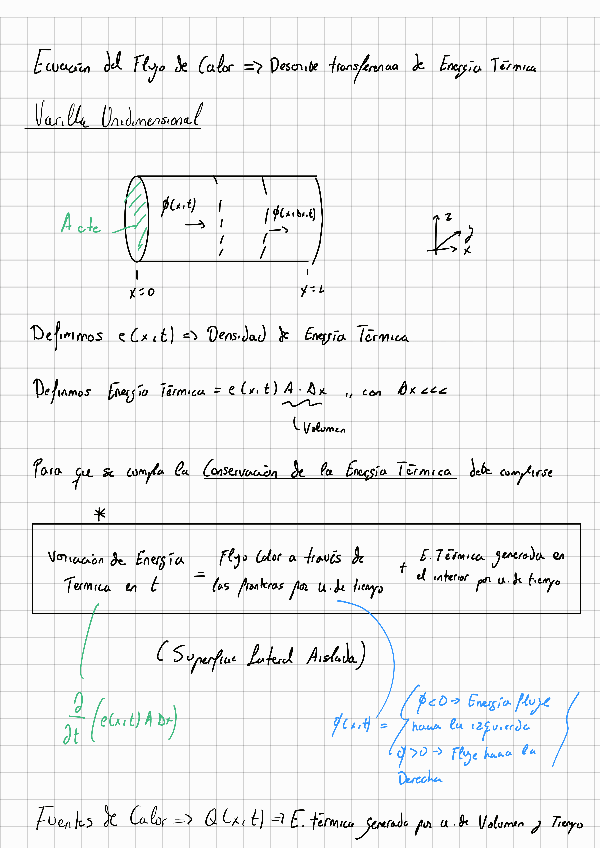 Ecuación del Flujo de Calor => Describe transferencia de Energía Térmica
Varilla Unidimensional
A cte
ϕ(x,t)
ϕ(x+Δx,t)
z
y
x
x=0
x=L
Definimos e(x,t) => Densidad de Energía Térmica
Definimos Energía Térmica = e(x,t) A · Δx ,, con Δx <<<
Volumen
Para que se cumpla la Conservación de la Energía Térmica debe cumplirse
*
Variación de Energía Térmica en t = Flujo Calor a través de las fronteras por u. de tiempo + E. Térmica generada en el interior por u. de tiempo
(Superficie Lateral Aislada)
∂/∂t (e(x,t) A Δx)
ϕ(x,t) =
ϕ<0 → Energía fluye
hacia la izquierda
ϕ>0 → Fluye hacia la
Derecha
Fuentes de Calor => Q(x,t) => E. térmica generada por u. de Volumen y Tiempo